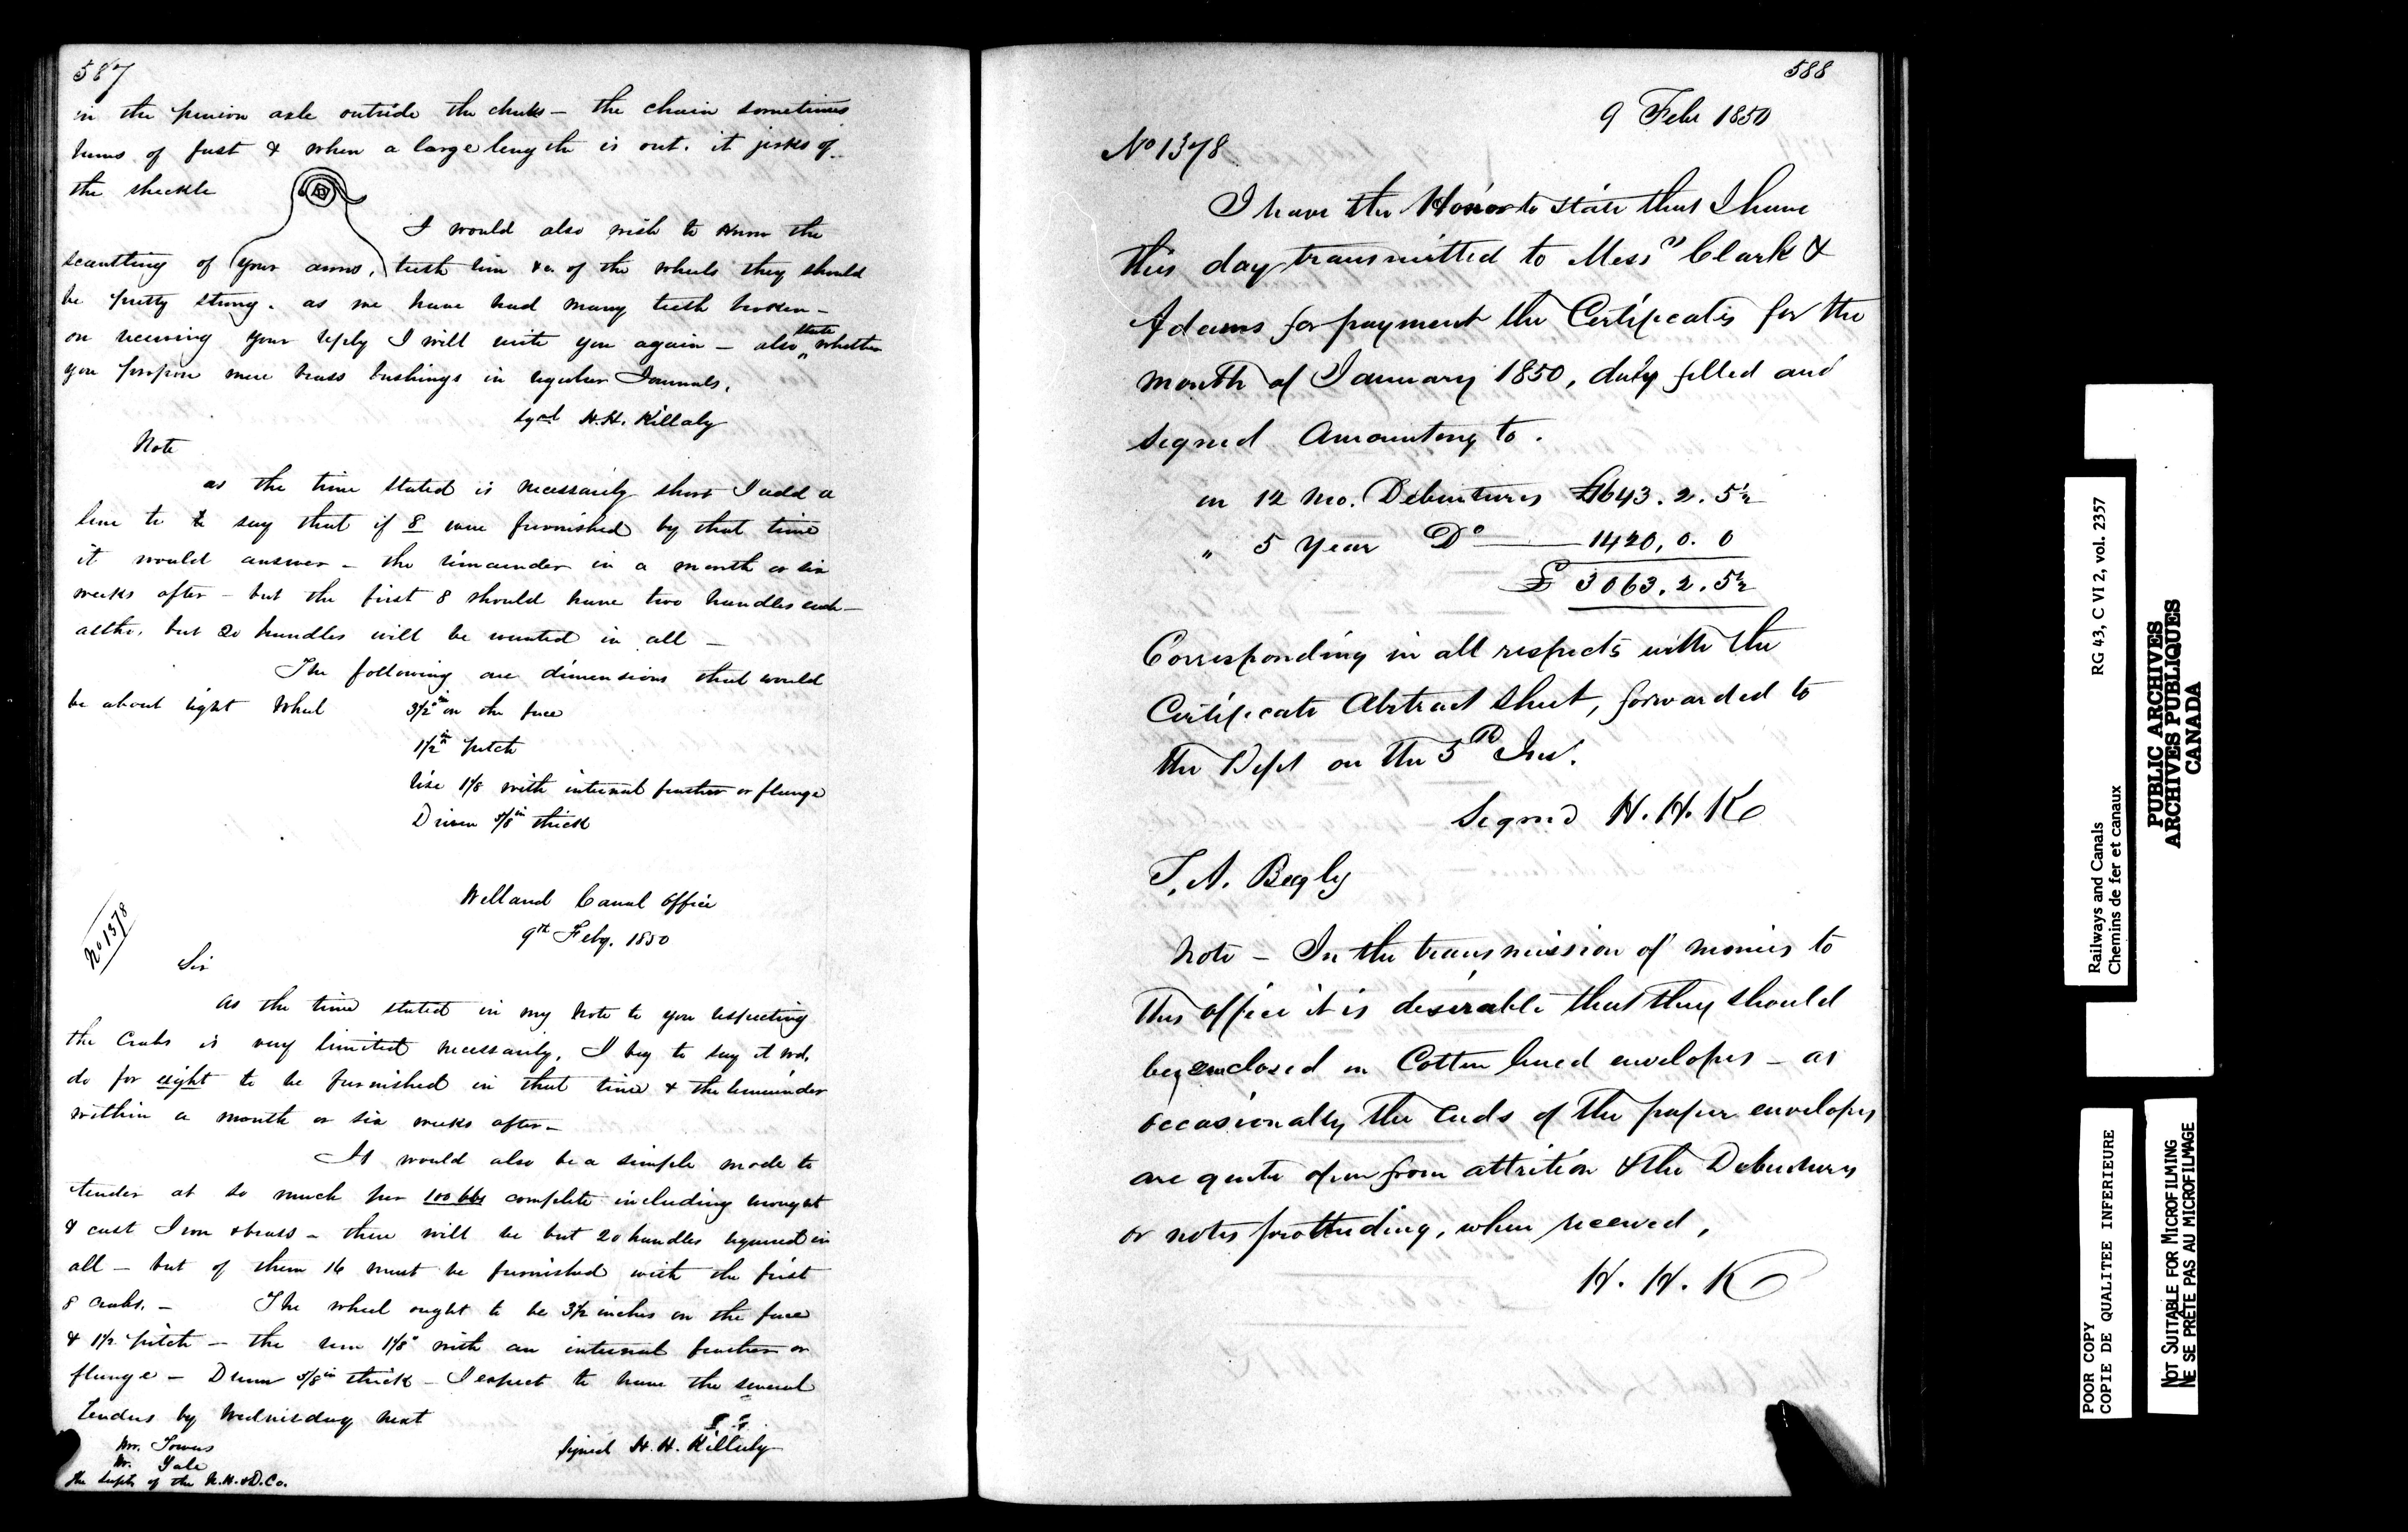 587
in the pinion axle outside the cheeks – the chain sometimes
turns of fast & when a large length is out. it jerks of
the sheckle
I would also wish to know the
scantling of your arms, teeth rim &c. of the wheels they should
be pretty strong. as we have had many teeth broken –
on receiving your reply I will write you again – also state whether
you propose mere brass bushings in regular Journals.
sgnd H.H. Killaly
Note
as the time stated is necessarily short I add a
line to say that if 8 were furnished by that time
it would answer – the remainder in a month or six
weeks after – but the first 8 should have two handles each –
altho. but 20 handles will be wanted in all –
The following are dimensions that would
be about right Wheel 3 1/2 in on the face
1 1/2 in pitch
rise 1 1/8 with internal feather or flange
Driven 5/8 in thick
Welland Canal Office
9th Feby. 1850
No 1378
Sir
as the time stated in my note to you respecting
the Crabs is very limited necessarily, I beg to say it wd.
do for eight to be furnished in that time & the remainder
within a month or six weeks after –
It would also be a simple mode to
tender at so much per 100 lbs complete including wrought
& cast Iron & brass – there will be but 20 handles required in
all – but of them 16 must be furnished with the first
8 crabs. – The wheel ought to be 3 1/2 inches on the face
& 1 1/2 pitch – the rim 1 1/8" with an internal feather or
flange – Drum 5/8 in thick – I expect to have the several
tenders by Wednesday next
signed H. H. Killaly
Mr. Towers
Mr. Yale
the Supts of the N.H.&D.Co.
588
9 Feby 1850
No 1378
I have the Honor to state that I have
this day transmitted to Messrs Clark &
Adams for payment the Certificates for the
month of January 1850, duly filled and
signed Amounting to .
in 12 mo. Debentures £1643. 2. 5 1/2
" 5 Year Do — 1420. 0. 0
£ 3063. 2. 5 1/2
Corresponding in all respects with the
Certificate Abstract Sheet, forwarded to
the Dept on the 5th Inst.
Signed H. H. K
T. A. Begly
Note – In the transmission of monies to
this office it is desirable that they should
be enclosed in Cotton lined envelopes – as
occasionally the ends of the paper envelopes
are quite open from attrition & the Debentures
or notes protruding, when received,
H. H. K
Railways and Canals RG 43, C VI 2, vol. 2357
Chemins de fer et canaux
PUBLIC ARCHIVES
ARCHIVES PUBLIQUES
CANADA
POOR COPY
COPIE DE QUALITEE INFERIEURE
NOT SUITABLE FOR MICROFILMING
NE SE PRÊTE PAS AU MICROFILMAGE